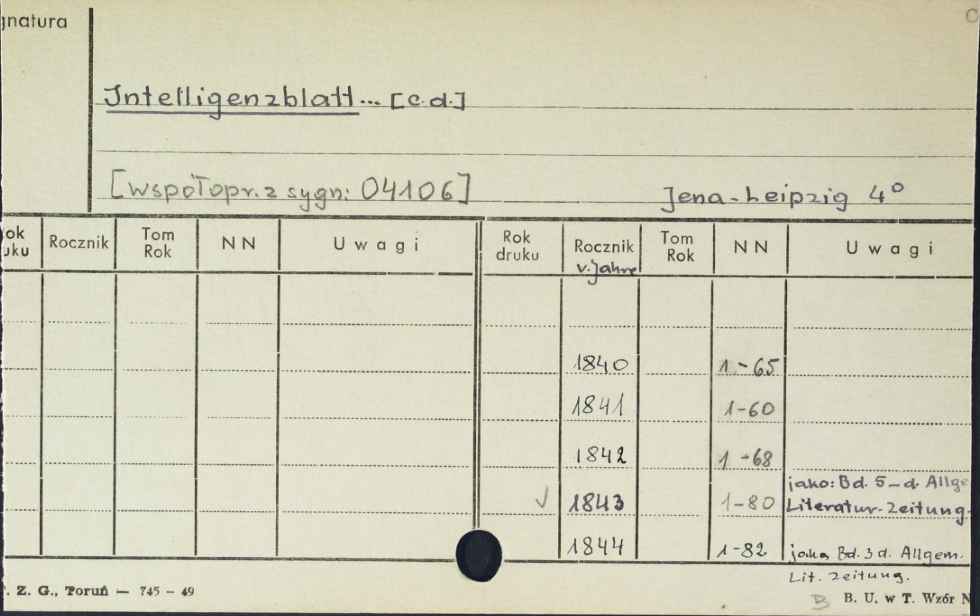 gnatura
Intelligenzblatt... [c.d.]
[współopr. z sygn: 04106] Jena-Leipzig 4°
ok uku Rocznik Tom Rok NN Uwagi Rok druku Rocznik v. Jahre Tom Rok NN Uwagi
1840 1-65
1841 1-60
1842 1-68
jako: Bd. 5 - d. Allge
√ 1843 1-80 Literatur-Zeitung.
1844 1-82 jako Bd. 3 d. Allgem.
Lit. Zeitung.
. Z. G., Toruń — 745 - 49 B. U. w T. Wzór N